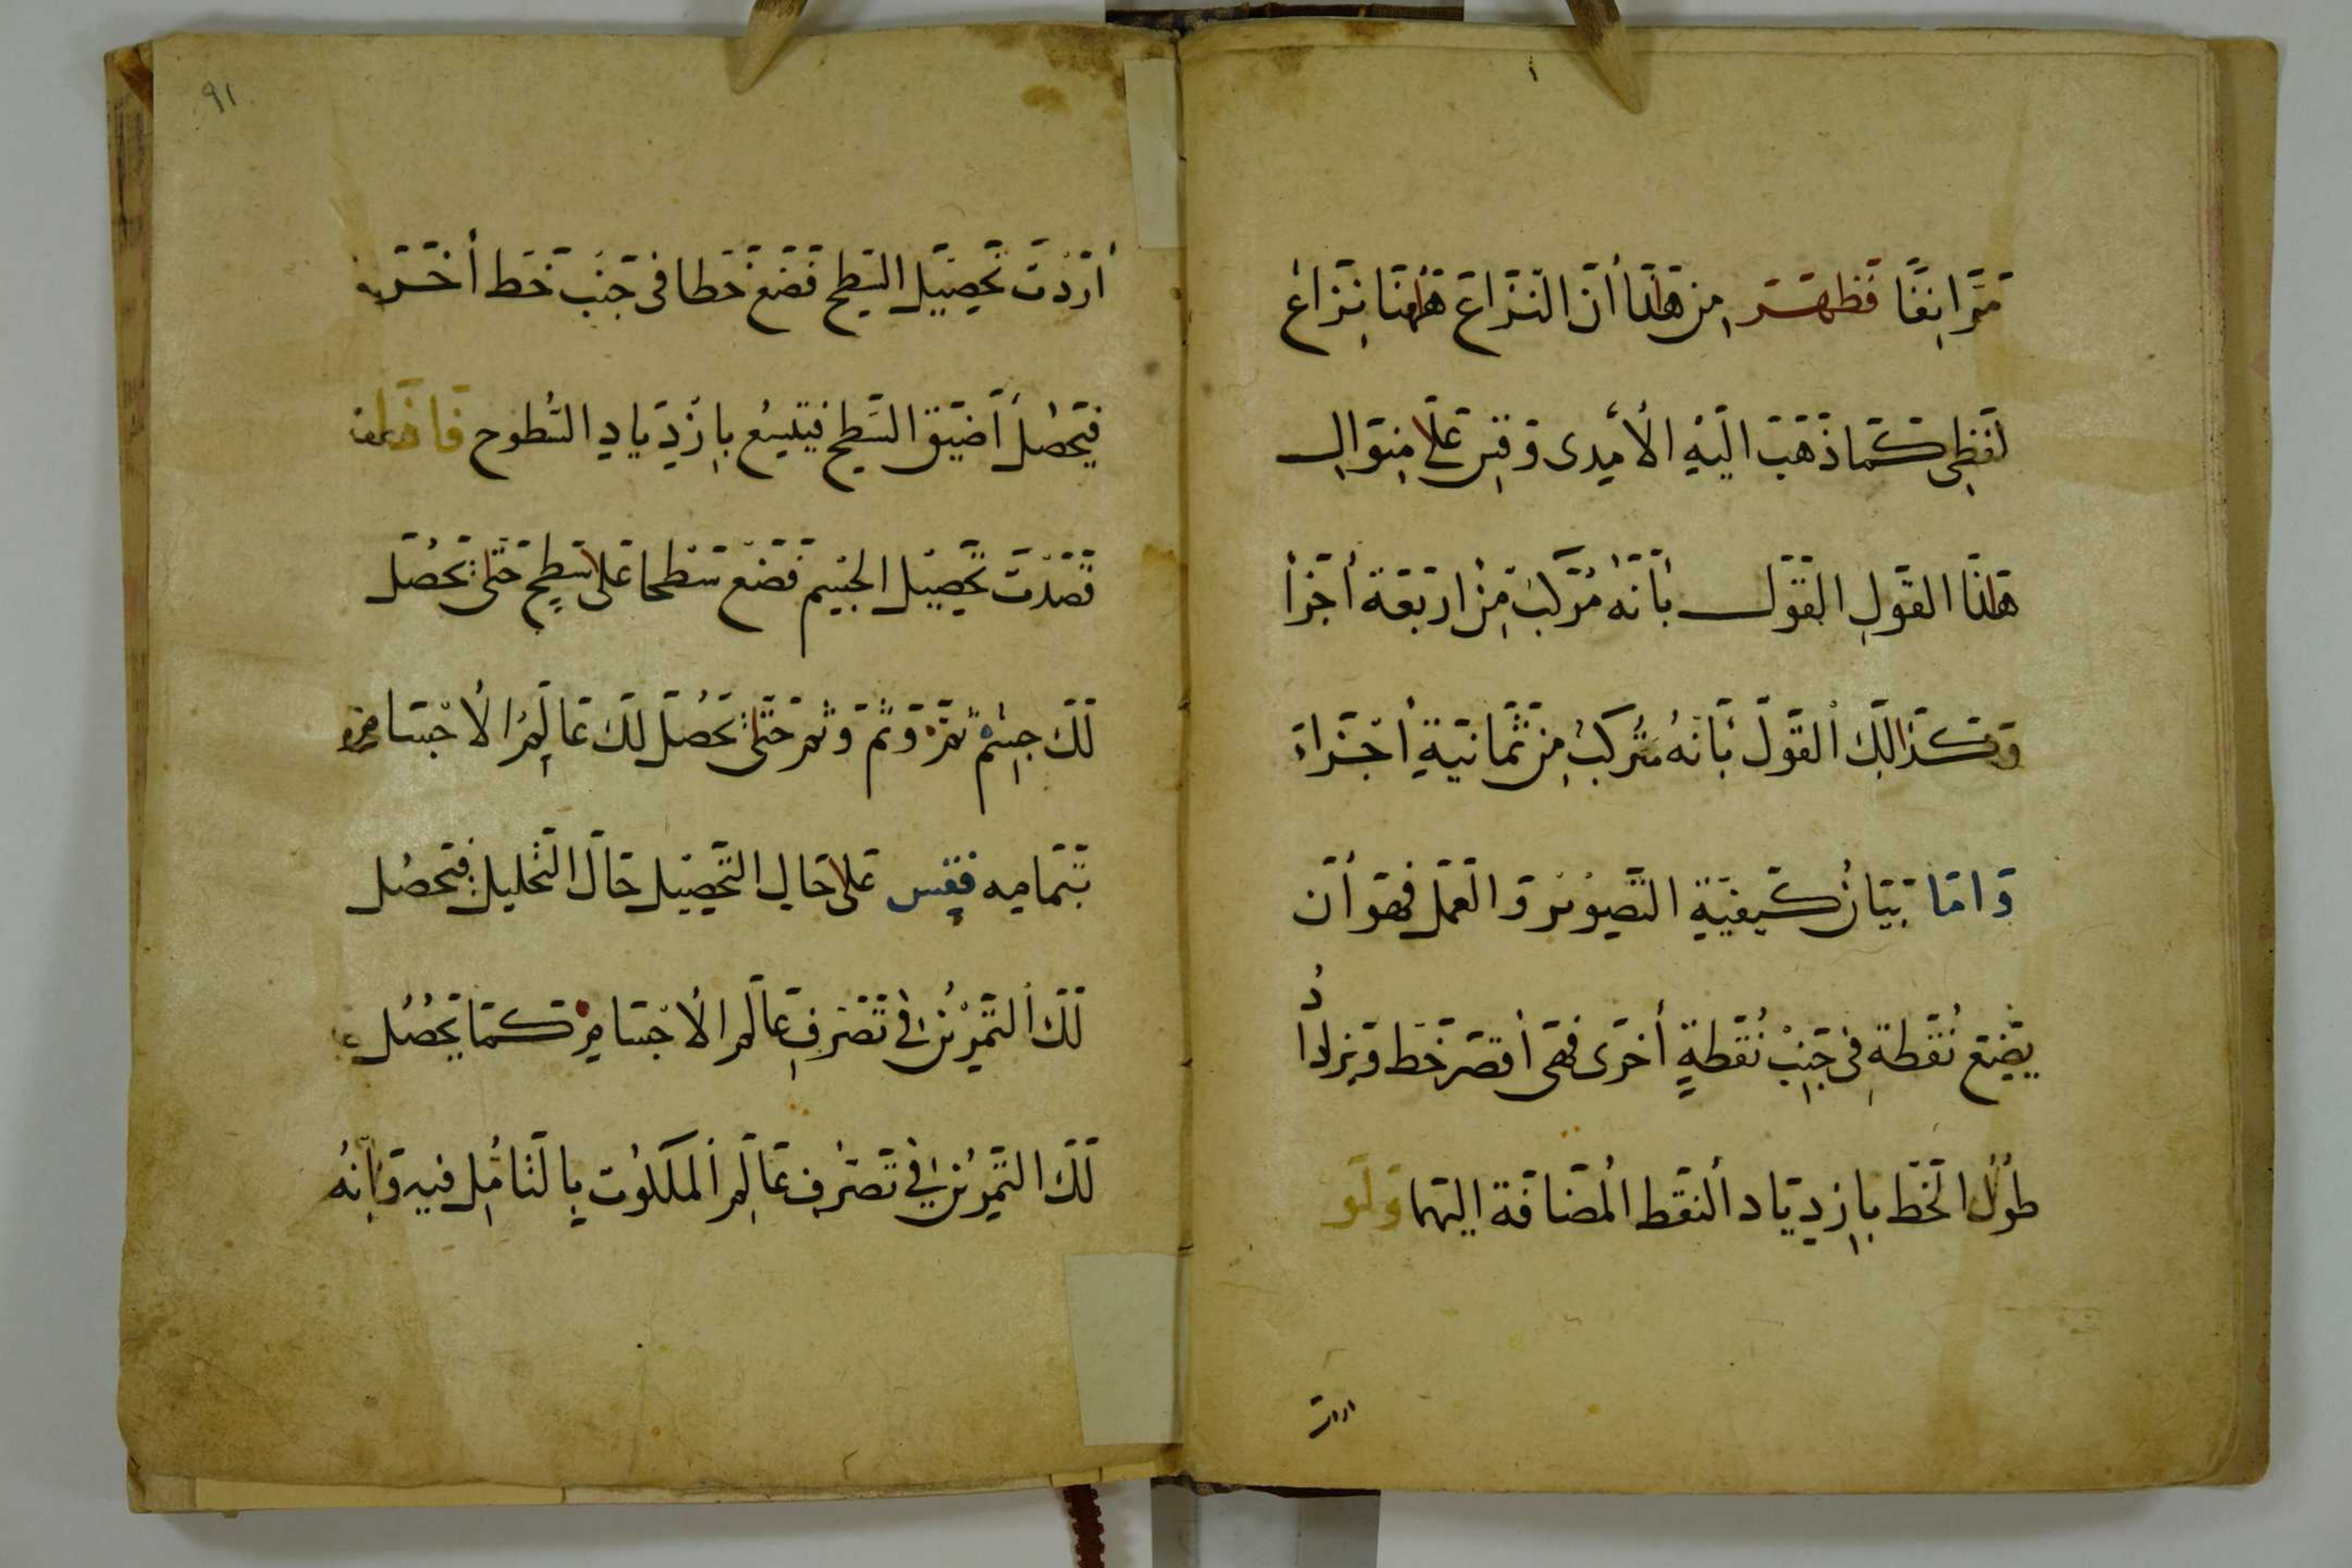 مَرَّ انِفًا فَظَهَرَ مِنْ هٰذَا أَنَّ النِّزَاعَ هٰهُنَا نِزَاعٌ
لَفْظِى كَمَا ذَهَبَ الَيْهِ الأمِدى وَقِسْ عَلَى مِنْوَالِ
هٰذَا القَولِ القَوْل بِأَنَّهُ مُرَكَّبٌ مِنْ اَرْبَعَة أَجْزَأ
وَكَذَالِكَ القَوْلَ بَأَنَّهُ مُرَكَّبٌ مِنْ ثَمَانِيَةِ أجْزَاءٍ
وَامَّا بَيَانُ كَيفِيَّةِ التَّصْوِيْرِ وَالعَمَلِ فَهُوَ أَنْ
يَضَعَ نُقْطَةً فِى جَنْبِ نُقْطَةٍ أخْرَى فَهِىَ أَقْصَرُ خَط وَيَزْدَادُ
طُوْلُ الخَطِّ بِازِدِيَادِ النُّقَطِ المُضَافَةِ اليَهَا وَلَو
اردت
٩١
أَرَدْتَ تَحْصِيْلَ السَّطْحِ فَضَعْ خَطا فى جَنْبِ خَط أَخَر
فَيَحْصُلُ أَضْيَقُ السَّطْحِ فَيَتَّسِعُ بِازْدِيَادِ السُّطُوحِ فَاذَا
قَصَدْتَ تَحْصِيْلَ الجِسْمِ فَضَعْ سَطْحا عَلَى سَطْحٍ حَتَّى تَحْصُلَ
لَكَ جِسْمٌ ثَمَّ وَثَمَّ وَثَمَّ حَتَّى تَحْصُلَ لَكَ عَالَمُ الأجْسَامِ
بِتَمَامِه فَقِس عَلَى حَالِ التَّحْصِيْلِ حَالَ التَّحْلِيلِ فَتَحصُل
لَكَ التَّمَرُّنُ فِى تَصَرُّفِ عَالَمِ الأجْسَامِ كَمَا يَحْصُلُ
لَكَ التَّمَرُّنُ فِي تَصَرُّفِ عَالَمِ المَلَكُوْتِ بِالتَّأمُّلِ فِيهِ وَأنَّهُ